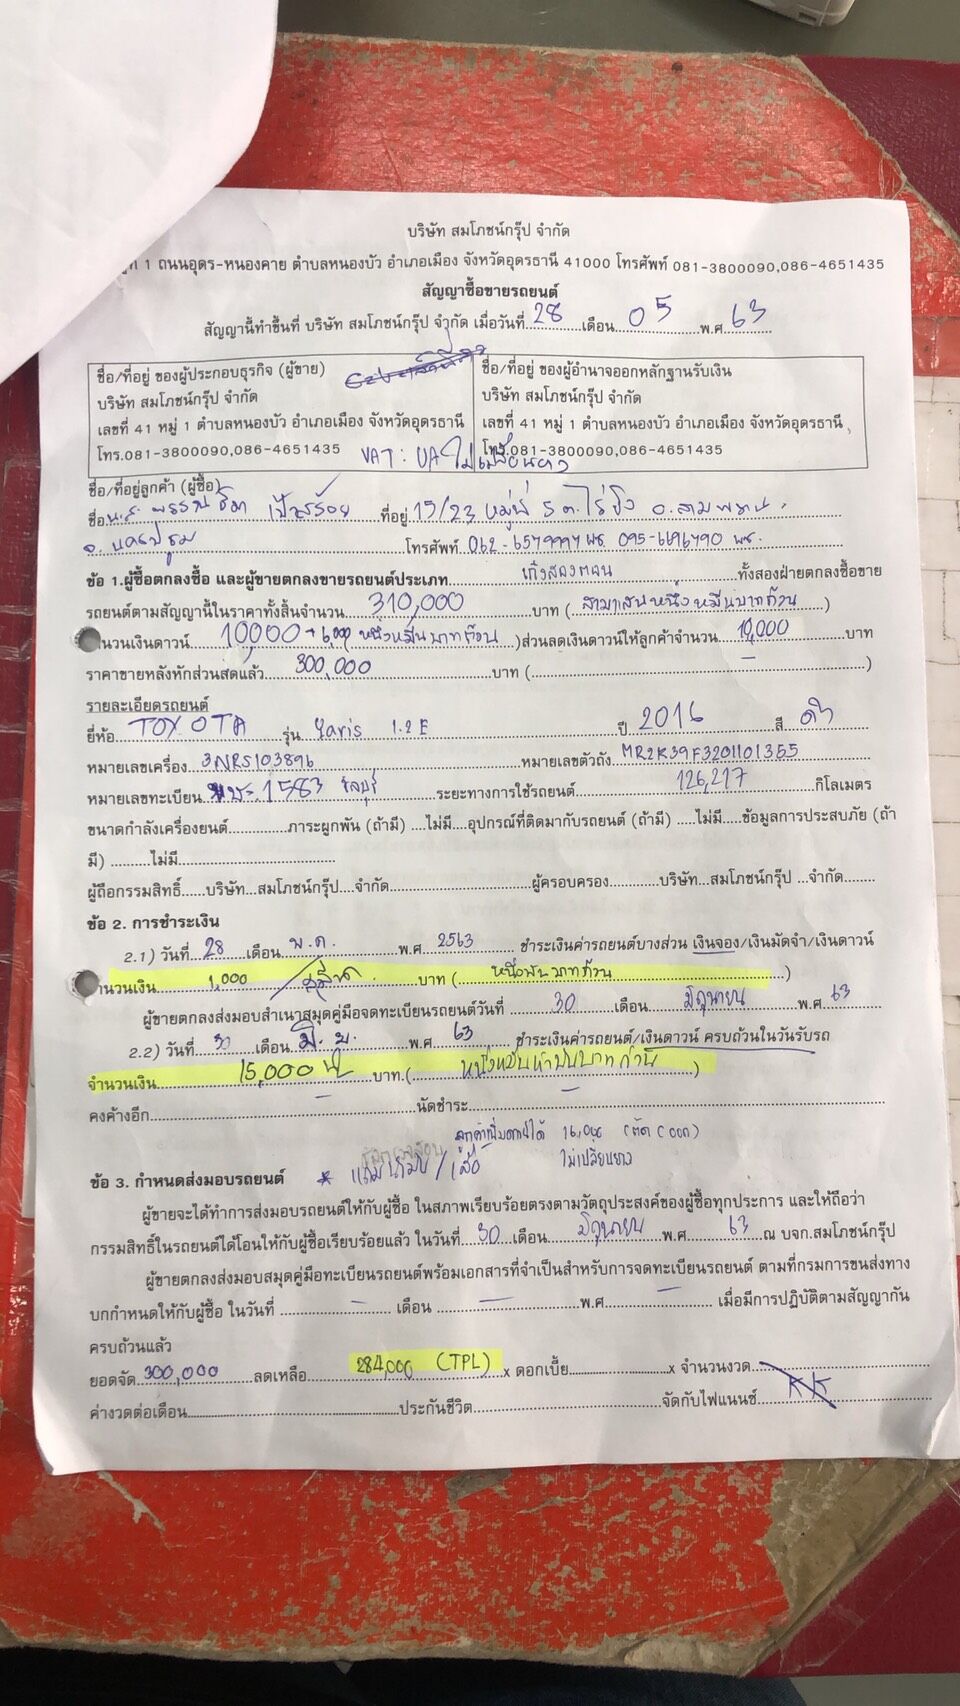 บริษัท สมโภชน์กรุ๊ป จำกัด
1 ถนนอุดร-หนองคาย ตำบลหนองบัว อำเภอเมือง จังหวัดอุดรธานี 41000 โทรศัพท์ 081-3800090,086-4651435
สัญญาซื้อขายรถยนต์
สัญญานี้ทำขึ้นที่ บริษัท สมโภชน์กรุ๊ป จำกัด เมื่อวันที่ 28 เดือน 05 พ.ศ 63
ชื่อ/ที่อยู่ ของผู้ประกอบธุรกิจ (ผู้ขาย)
บริษัท สมโภชน์กรุ๊ป จำกัด
เลขที่ 41 หมู่ 1 ตำบลหนองบัว อำเภอเมือง จังหวัดอุดรธานี
โทร.081-3800090,086-4651435
ชื่อ/ที่อยู่ ของผู้อำนาจออกหลักฐานรับเงิน
บริษัท สมโภชน์กรุ๊ป จำกัด
เลขที่ 41 หมู่ 1 ตำบลหนองบัว อำเภอเมือง จังหวัดอุดรธานี
โทร.081-3800090,086-4651435
ไม่เปลี่ยนยาง
ชื่อ/ที่อยู่ลูกค้า (ผู้ซื้อ)
ชื่อ น.ส. เป้าสร้อย ที่อยู่ 15/23 หมู่ที่ 5 ต.ไร่ขิง อ.สามพราน
จ. นครปฐม โทรศัพท์. 062-6579997 095-6696790
ข้อ 1.ผู้ซื้อตกลงซื้อ และผู้ขายตกลงขายรถยนต์ประเภท เก๋งสองตอน ทั้งสองฝ่ายตกลงซื้อขาย
รถยนต์ตามสัญญานี้ในราคาทั้งสิ้นจำนวน 310,000 บาท (สามแสนหนึ่งหมื่นบาทถ้วน)
จำนวนเงินดาวน์ 10,000 + 6,000 (หนึ่งหมื่นบาทถ้วน)ส่วนลดเงินดาวน์ให้ลูกค้าจำนวน 10,000 บาท
ราคาขายหลังหักส่วนสดแล้ว 300,000 บาท ( - )
รายละเอียดรถยนต์
ยี่ห้อ TOYOTA รุ่น Yaris 1.2 E ปี 2016 สี ดำ
หมายเลขเครื่อง 3NRS103896 หมายเลขตัวถัง MR2K39F3201101355
หมายเลขทะเบียน 1583 ชลบุรี ระยะทางการใช้รถยนต์ 126,217 กิโลเมตร
ขนาดกำลังเครื่องยนต์..............ภาระผูกพัน (ถ้ามี) ....ไม่มี....อุปกรณ์ที่ติดมากับรถยนต์ (ถ้ามี) .....ไม่มี.....ข้อมูลการประสบภัย (ถ้า
มี) ..........ไม่มี......................................
ผู้ถือกรรมสิทธิ์......บริษัท...สมโภชน์กรุ๊ป....จำกัด..................................ผู้ครอบครอง............บริษัท...สมโภชน์กรุ๊ป ...จำกัด........
ข้อ 2. การชำระเงิน
2.1) วันที่ 28 เดือน พ.ค. พ.ศ 2563 ชำระเงินค่ารถยนต์บางส่วน เงินจอง/เงินมัดจำ/เงินดาวน์
จำนวนเงิน 1,000 บาท (หนึ่งพันบาทถ้วน)
ผู้ขายตกลงส่งมอบสำเนาสมุดคู่มือจดทะเบียนรถยนต์วันที่ 30 เดือน มิถุนายน พ.ศ 63
2.2) วันที่ 30 เดือน มิ.ย. พ.ศ 63 ชำระเงินค่ารถยนต์/เงินดาวน์ ครบถ้วนในวันรับรถ
จำนวนเงิน 15,000 บาท.(หนึ่งหมื่นห้าพันบาทถ้วน)
คงค้างอีก - นัดชำระ -
ลูกค้าเพิ่มดาวน์ได้
ไม่เปลี่ยนยาง
ข้อ 3. กำหนดส่งมอบรถยนต์
ผู้ขายจะได้ทำการส่งมอบรถยนต์ให้กับผู้ซื้อ ในสภาพเรียบร้อยตรงตามวัตถุประสงค์ของผู้ซื้อทุกประการ และให้ถือว่า
กรรมสิทธิ์ในรถยนต์ได้โอนให้กับผู้ซื้อเรียบร้อยแล้ว ในวันที่ 30 เดือน มิถุนายน พ.ศ 63 ณ บจก.สมโภชน์กรุ๊ป
ผู้ขายตกลงส่งมอบสมุดคู่มือทะเบียนรถยนต์พร้อมเอกสารที่จำเป็นสำหรับการจดทะเบียนรถยนต์ ตามที่กรมการขนส่งทาง
บกกำหนดให้กับผู้ซื้อ ในวันที่ - เดือน - พ.ศ - เมื่อมีการปฏิบัติตามสัญญากัน
ครบถ้วนแล้ว
ยอดจัด 300,000 ลดเหลือ 284,000 (TPL) x ดอกเบี้ย x จำนวนงวด
ค่างวดต่อเดือน ประกันชีวิต จัดกับไฟแนนซ์ KK